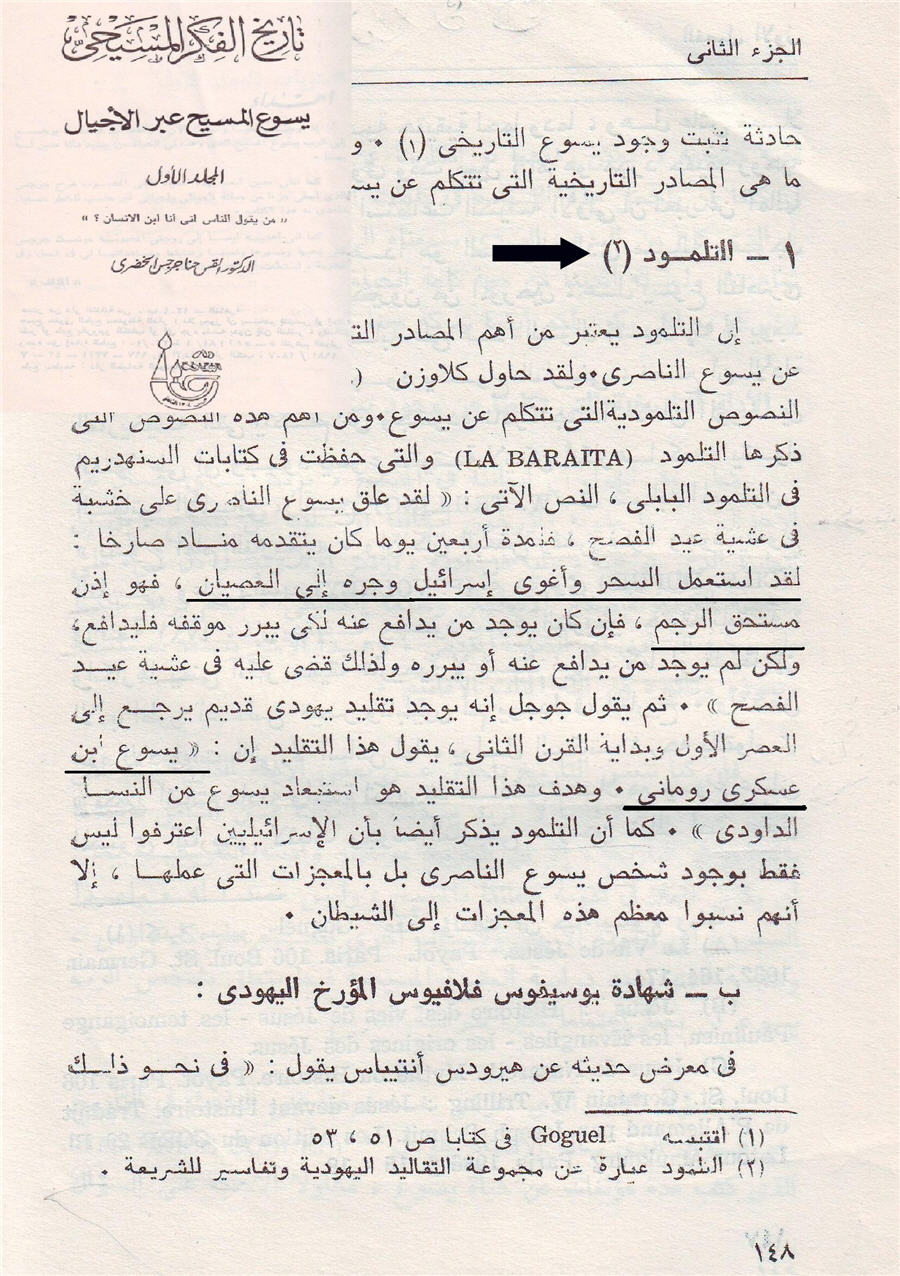 تاريخ الفكر المسيحى
يسوع المسيح عبر الأجيال
المجلد الأول
« من يقول الناس انى أنا ابن الانسان ؟ »
الدكتور القس حنا جرجس الخضرى
الجزء الثانى
حادثة تثبت وجود يسوع التاريخى (١) ٠ و
ما هى المصادر التاريخية التى تتكلم عن يسـ
١ — التلمــود (٢)
إن التلمود يعتبر من أهم المصادر التـ
عن يسوع الناصرى٠ولقد حاول كلاوزن (
النصوص التلموديةالتى تتكلم عن يسوع٠ومن أهم هذه النصوص التى
ذكرها التلمود (LA BARAITA) والتى حفظت فى كتابات السنهدريم
فى التلمود البابلى ، النص الآتى : « لقد علق يسوع الناصرى على خشبة
فى عشية عيد الفصح ، فلمدة أربعين يوما كان يتقدمه منــاد صارخا :
لقد استعمل السحر وأغوى إسرائيل وجره إلى العصيان ، فهو إذن
مستحق الرجم ، فإن كان يوجد من يدافع عنه لكى يبرر موقفه فليدافع،
ولكن لم يوجد من يدافع عنه أو يبرره ولذلك قضى عليه فى عشية عيــد
الفصح » ٠ ثم يقول جوجل إنه يوجد تقليد يهودى قديم يرجــع إلى
العصر الأول وبداية القرن الثانى ، يقول هذا التقليد إن : « يسوع ابن
عسكرى رومانى ٠ وهدف هذا التقليد هو استبعاد يسوع من النســا
الداودى » ٠ كما أن التلمود يذكر أيضا بأن الإسرائيليين اعترفوا ليس
فقط بوجود شخص يسوع الناصرى بل بالمعجزات التى عملهــا ، إلا
أنهم نسبوا معظم هذه المعجزات إلى الشيطان ٠
ب — شهادة يوسيفوس فلافيوس المؤرخ اليهودى :
فى معرض حديثه عن هيرودس أنتيباس يقول : « فى نحو ذلــك
(١) اقتبسه Goguel فى كتابا ص ٥١ ، ٥٣
(٢) التلمود عبارة عن مجموعة التقاليد اليهودية وتفاسير للشريعة ٠
١٤٨